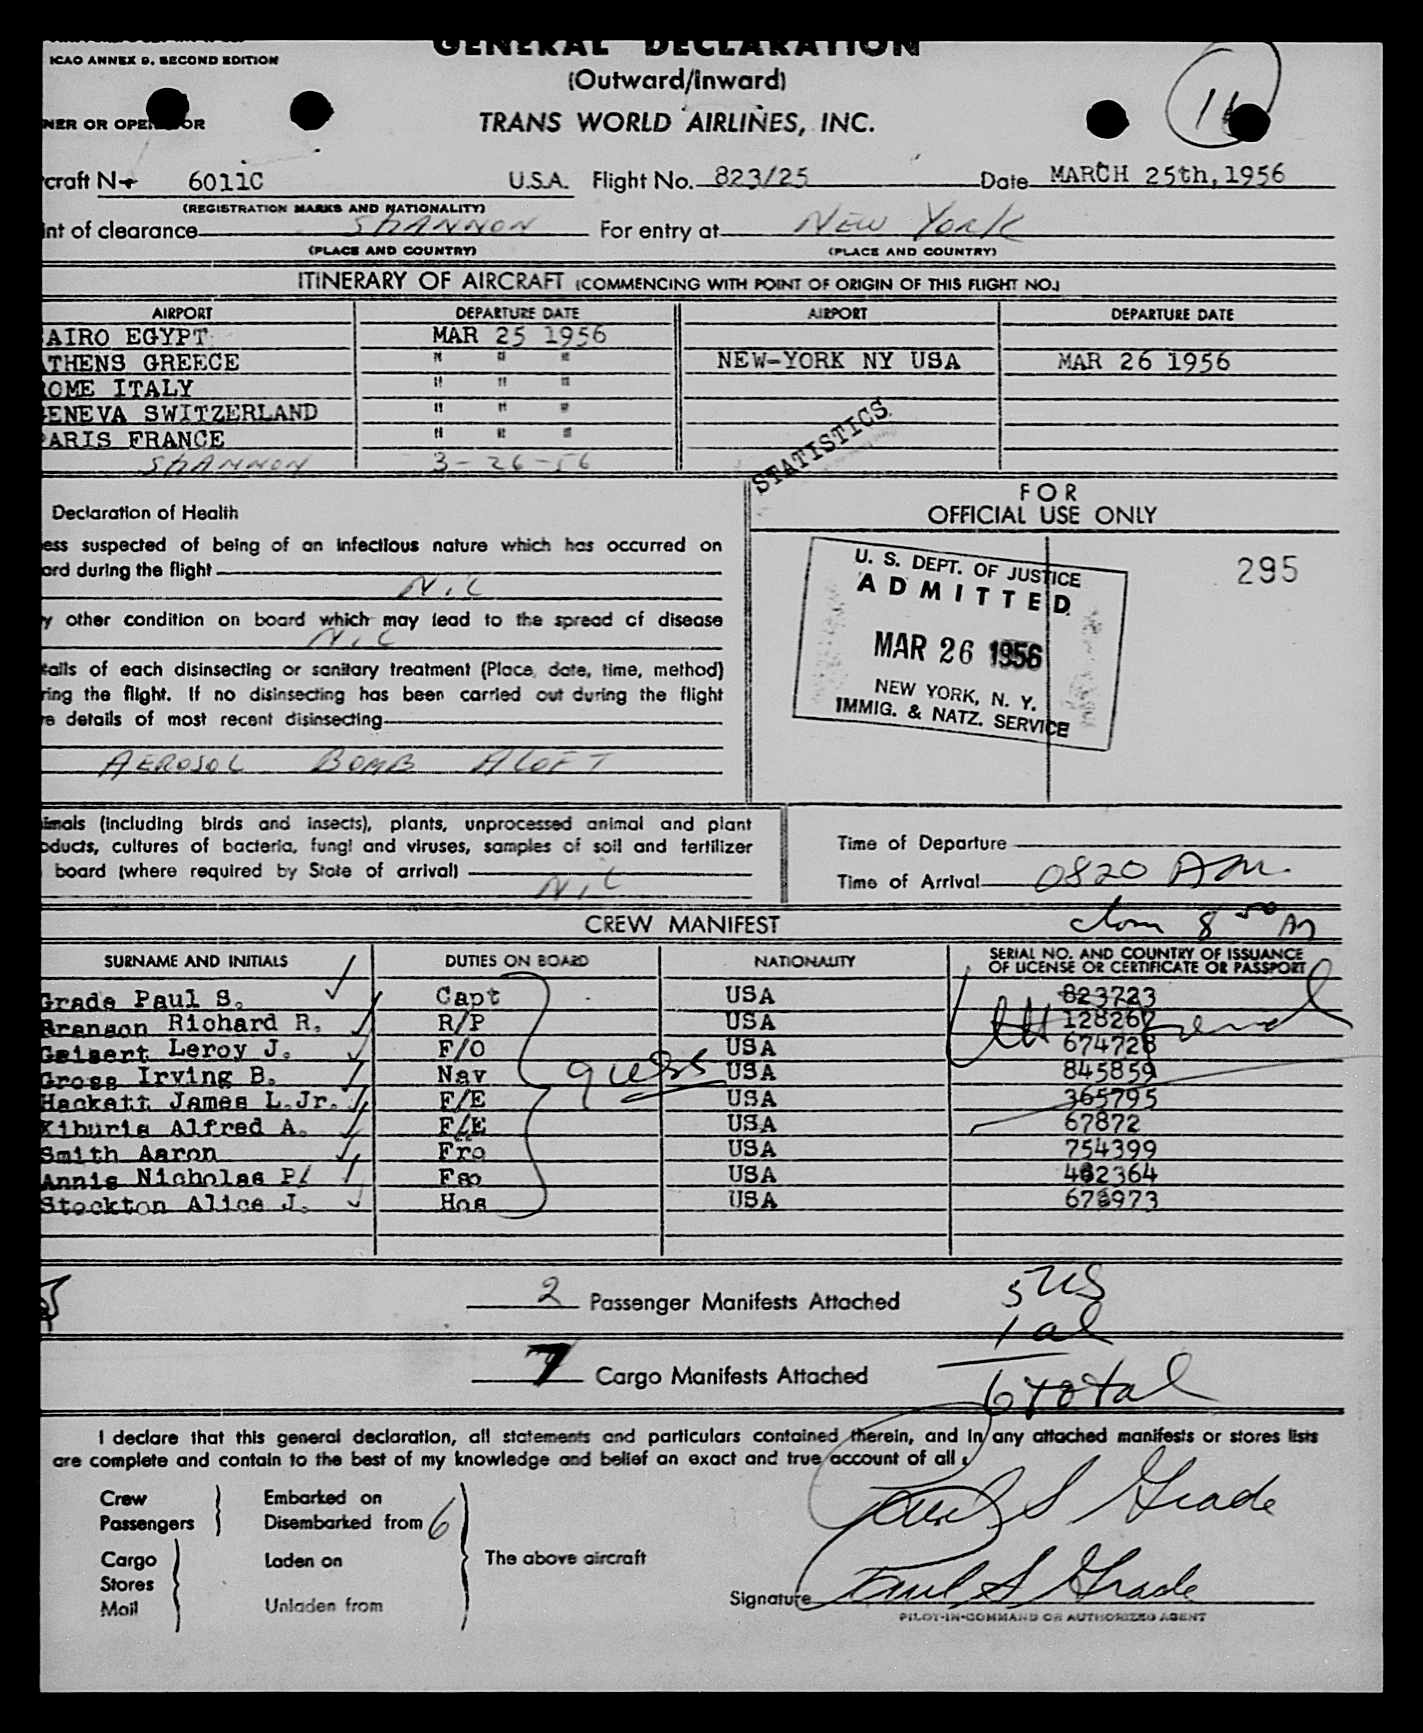 ICAO ANNEX 9, SECOND EDITION
GENERAL DECLARATION
(Outward/Inward)
NER OR OPERATOR
TRANS WORLD AIRLINES, INC.
craft N- 6011C U.S.A. Flight No. 823/25 Date MARCH 25th, 1956
(REGISTRATION MARKS AND NATIONALITY)
int of clearance SHANNON For entry at NEW YORK
(PLACE AND COUNTRY) (PLACE AND COUNTRY)
ITINERARY OF AIRCRAFT (COMMENCING WITH POINT OF ORIGIN OF THIS FLIGHT NO.)
AIRPORT DEPARTURE DATE AIRPORT DEPARTURE DATE
AIRO EGYPT MAR 25 1956
THENS GREECE " " " NEW-YORK NY USA MAR 26 1956
OME ITALY " " "
ENEVA SWITZERLAND " " "
PARIS FRANCE " " "
SHANNON 3-26-56
STATISTICS
FOR
OFFICIAL USE ONLY
Declaration of Health
ess suspected of being of an infectious nature which has occurred on
ard during the flight
NIL
y other condition on board which may lead to the spread of disease
NIL
tails of each disinsecting or sanitary treatment (Place, date, time, method)
ring the flight. If no disinsecting has been carried out during the flight
e details of most recent disinsecting
AEROSOL BOMB ALOFT
U. S. DEPT. OF JUSTICE
ADMITTED
MAR 26 1956
NEW YORK, N. Y.
IMMIG. & NATZ. SERVICE
295
imals (including birds and insects), plants, unprocessed animal and plant
oducts, cultures of bacteria, fungi and viruses, samples of soil and fertilizer
board (where required by State of arrival)
NIL
Time of Departure
Time of Arrival 0820 AM
8 50 AM
CREW MANIFEST
SURNAME AND INITIALS DUTIES ON BOARD NATIONALITY SERIAL NO. AND COUNTRY OF ISSUANCE OF LICENSE OR CERTIFICATE OR PASSPORT
Grade Paul S. Capt USA 823723
Branson Richard R. R/P USA 128267
Geisert Leroy J. F/O USA 674728
Gross Irving B. Nav USA 845859
Hackett James L.Jr. F/E USA 365795
Kiburis Alfred A. F/E USA 67872
Smith Aaron Fro USA 754399
Annis Nicholas P/ Fso USA 402364
Stockton Alice J. Hos USA 678973
2 Passenger Manifests Attached
5 US
1 al
7 Cargo Manifests Attached
6 total
I declare that this general declaration, all statements and particulars contained therein, and in any attached manifests or stores lists
are complete and contain to the best of my knowledge and belief an exact and true account of all
Crew Embarked on
Passengers Disembarked from 6
Cargo Laden on The above aircraft
Stores
Mail Unladen from
Paul S Grade
Signature Paul S Grade
PILOT-IN-COMMAND OR AUTHORIZED AGENT